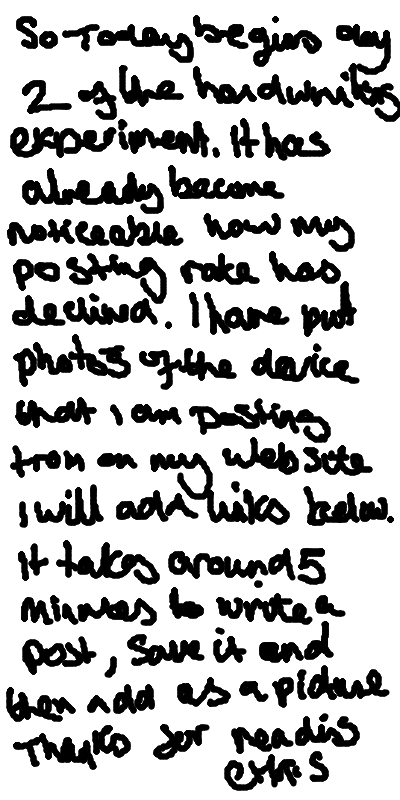 So Today begins day
2 of the handwriting
experiment. It has
already become
noticeable how my
posting rate has
declined. I have put
photos of the device
that i am posting
from on my website
I will add links below.
it takes around 5
minutes to write a
post, save it and
then add as a picture
Thanks for reading